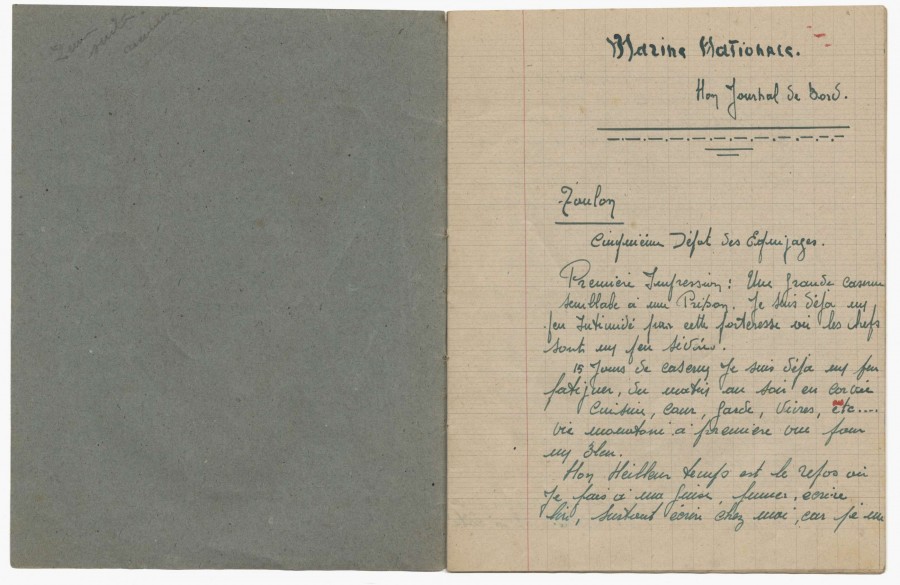 Marine Nationale.
Mon Journal de Bord.
Toulon
Cinquième Dépot des Equipages.
Première Impression : Une grande caserne
semblable à une Prison. Je suis déja un
peu Intimidé par cette forteresse où les chefs
sont un peu sévères.
15 Jours de caserne Je suis déja un peu
fatiguer, du matin au soir en corvée
Cuisine, cour, garde, Vivres, etc....
vie monotone à première vue pour
un Bleu.
Mon Meilleur temps est le repos où
Je fais à ma guise, fumer, écrire
lire, surtout écrire chez moi, car je me